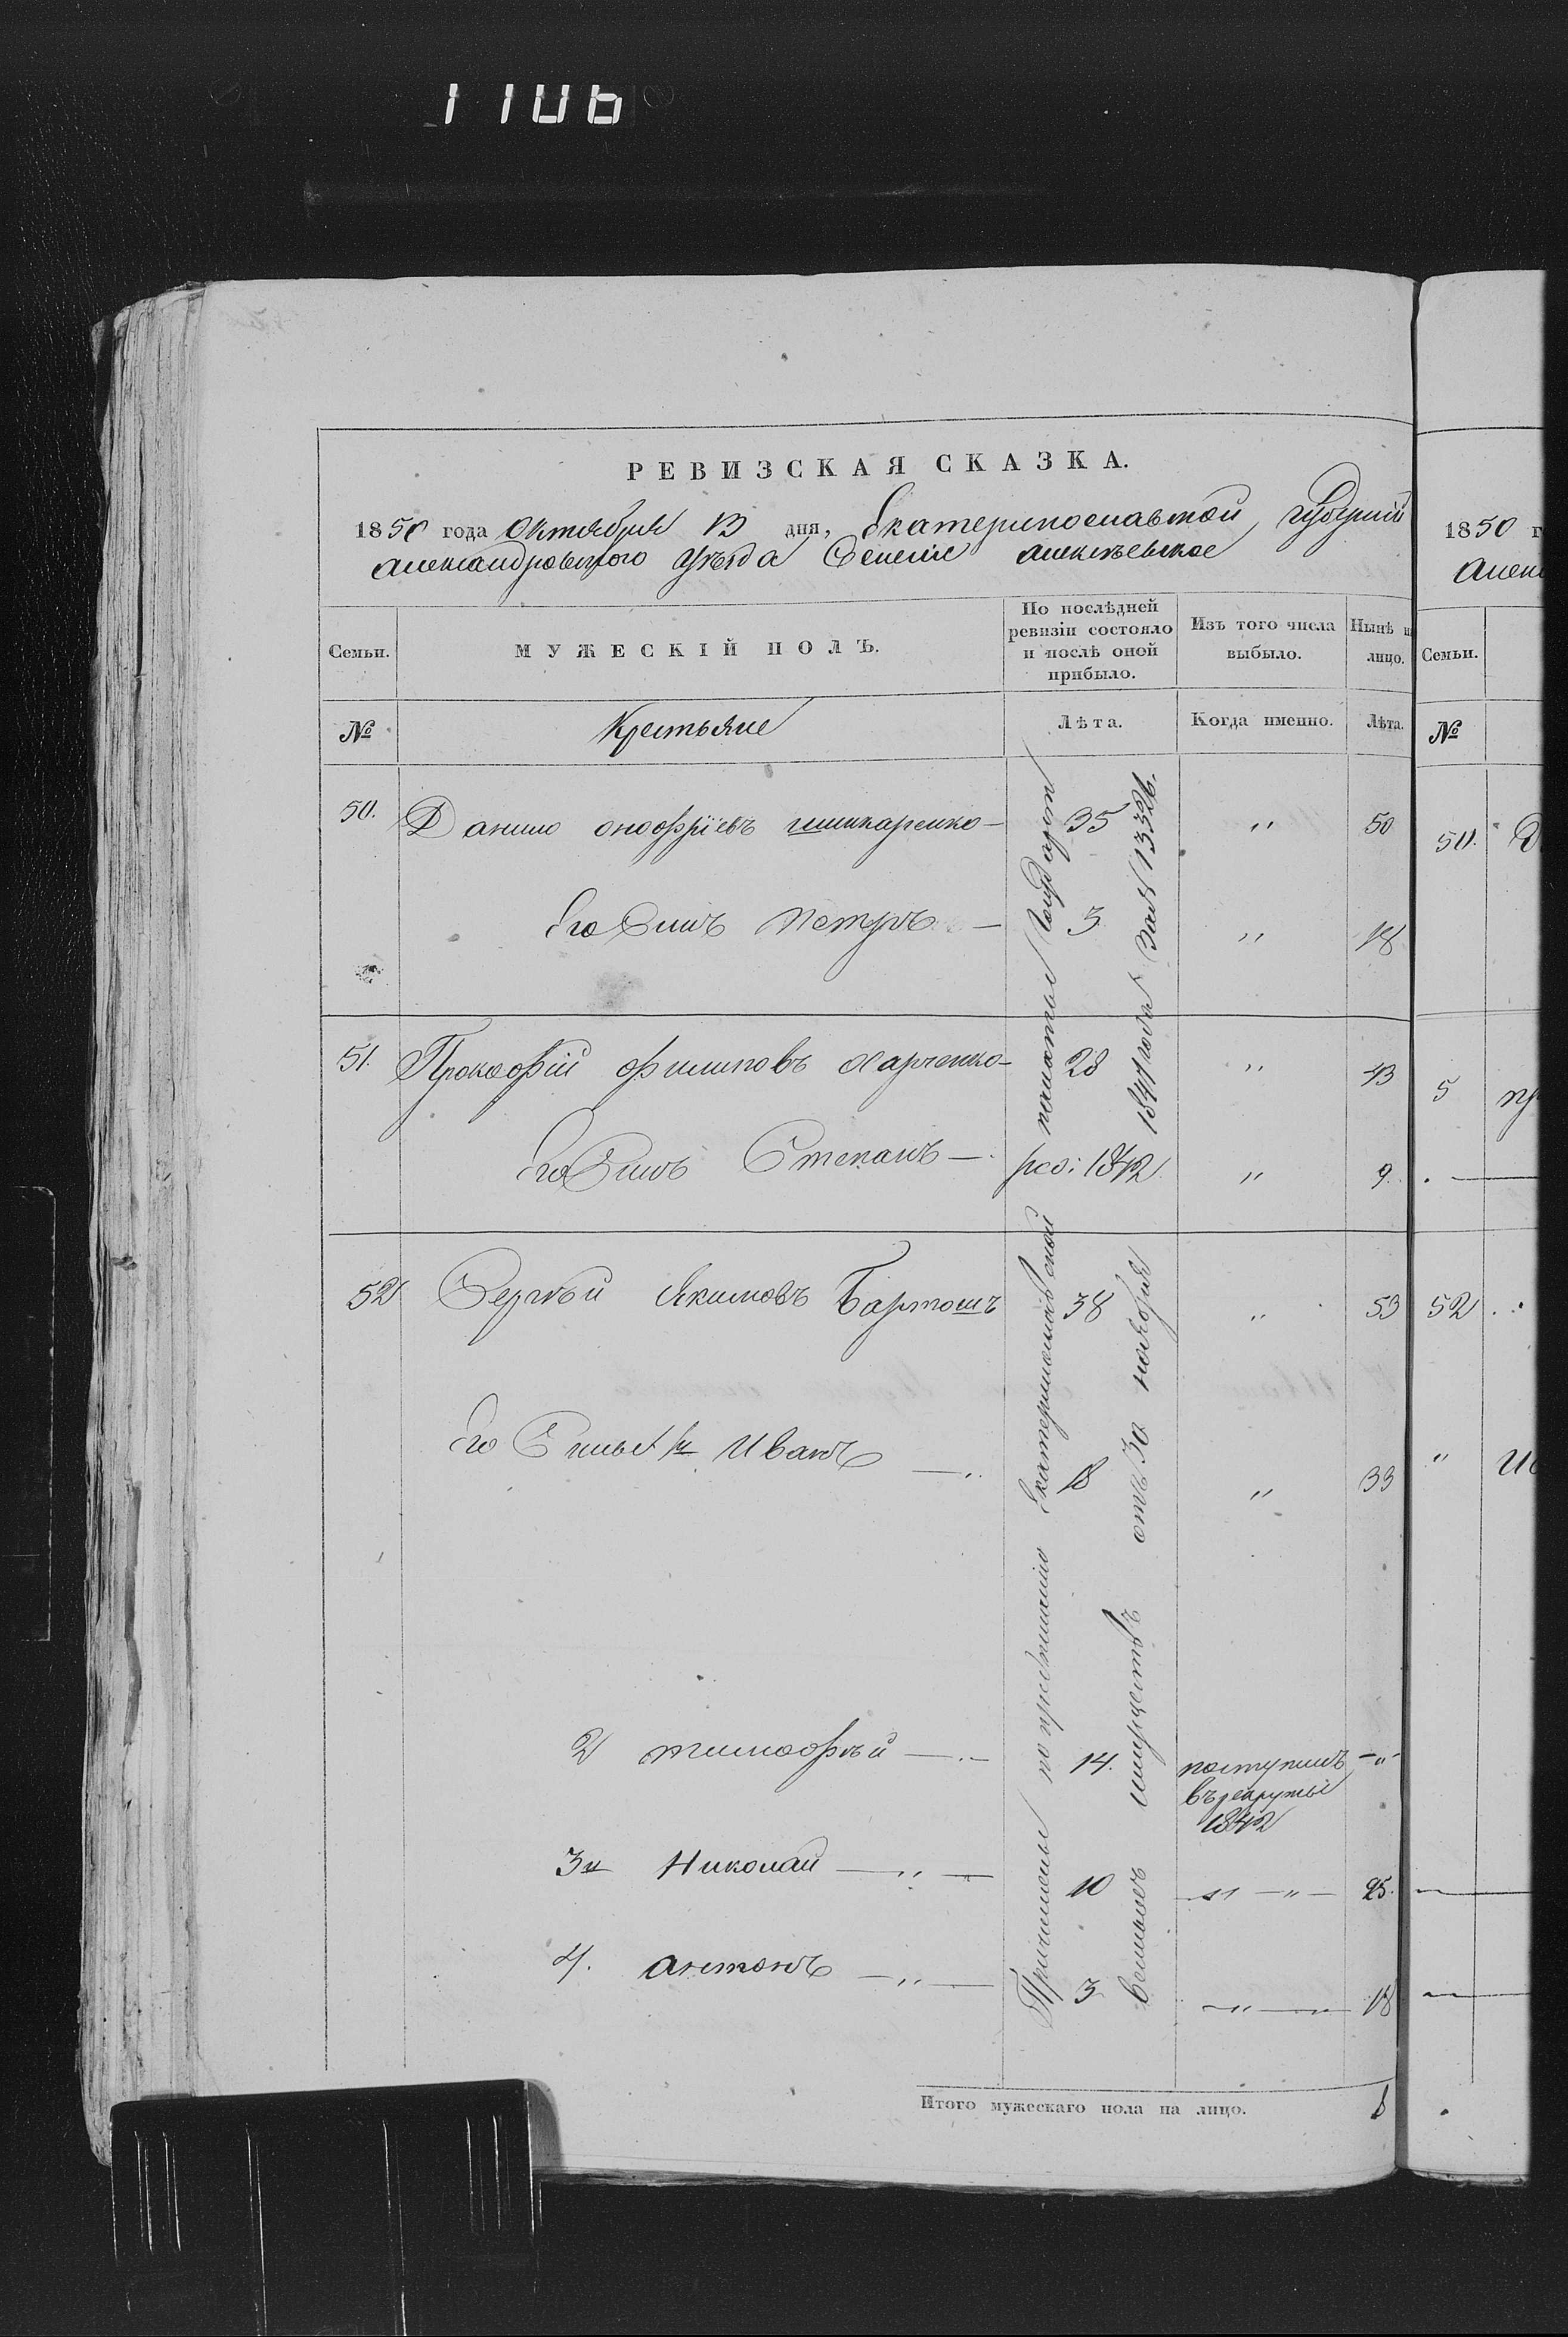 1106
РЕВИЗСКАЯ СКАЗКА.
1850 года Октября 13 дня, Екатеринославской губернии
Александровского уезда Селение Алексѣевское
Семьи.
МУЖЕСКІЙ ПОЛЪ.
По послѣдней ревизіи состояло и послѣ оной прибыло.
Изъ того числа выбыло.
Нынѣ на лицо.
№
Крестьяне
Лѣта.
Когда именно.
Лѣта.
50. Данило Онофріевъ 35 „ 50
Его Сынъ Петръ — 3 „ 18
51. Прокофій Филиповъ Харченко — 28 „ 43
Его Сынъ Степанъ — ро: 1842 „ 9.
52 Сергѣй Якимовъ Бартошъ 38 „ 53
Его Сынья 1й Иванъ — 18 „ 33
2 Тимофѣй — 14. поступилъ — „ —
въ рекруты
1842
3й Николай — „ — 10 — „ — 25.
4. Антонъ — „ — 3 — „ — 18
Причислены по предписанію Екатеринославской палаты Государст
Имуществъ отъ 30 ноября 1841 года За № 13326.
Итого мужескаго пола на лицо. 8
1850 г
Алек
Семьи.
№
50.
5
52 „